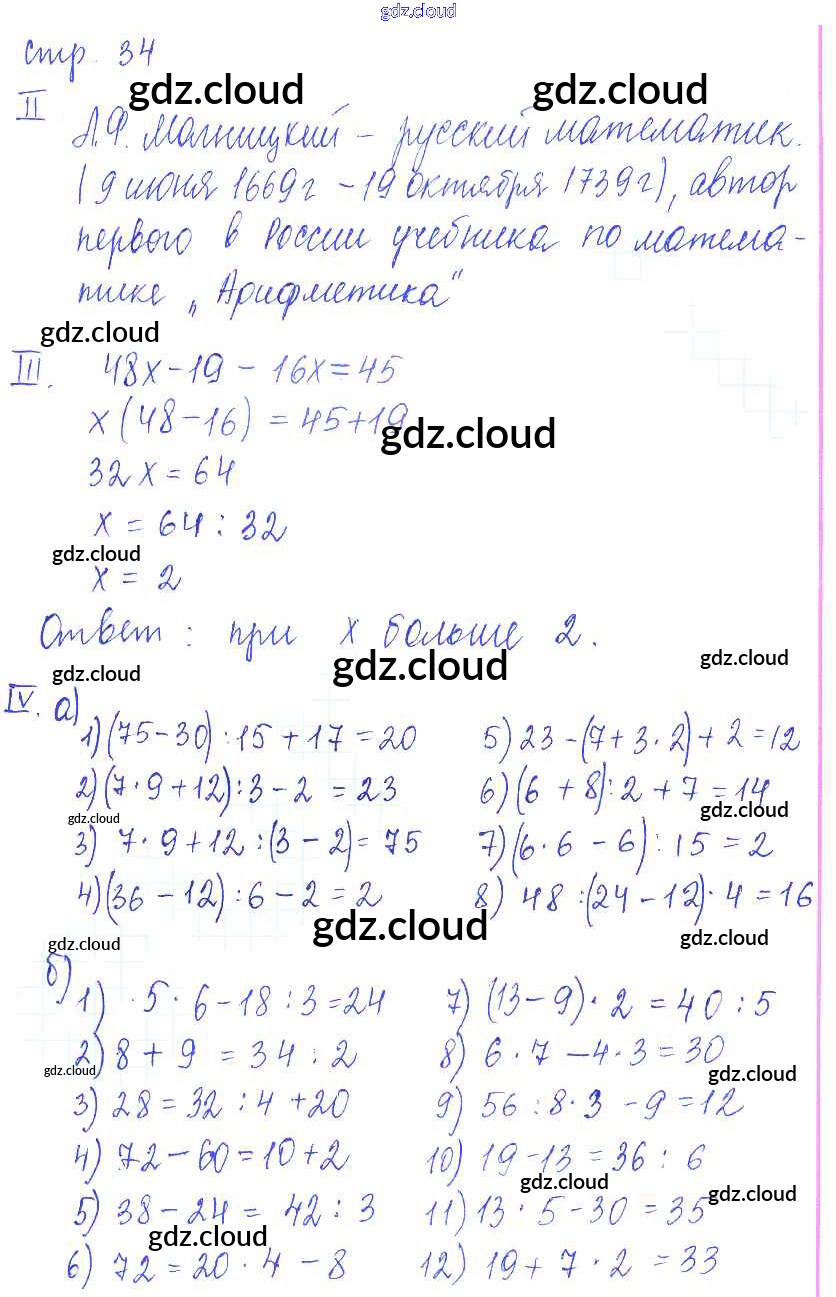 gdz.cloud
стр. 34
gdz.cloud gdz.cloud
II Л.Ф. Магницкий – русский математик.
(9 июня 1669г – 19 октября 1739г), автор
первого в России учебника по матема-
тике „Арифметика“
gdz.cloud
III. 48x – 19 – 16x = 45
x(48 – 16) = 45 + 19
gdz.cloud
32x = 64
x = 64 : 32
gdz.cloud
x = 2
Ответ : при x больше 2.
gdz.cloud gdz.cloud gdz.cloud
IV. а)
1) (75 – 30) : 15 + 17 = 20
2) (7 · 9 + 12) : 3 – 2 = 23
gdz.cloud
3) 7 · 9 + 12 : (3 – 2) = 75
4) (36 – 12) : 6 – 2 = 2
5) 23 – (7 + 3 · 2) + 2 = 12
6) (6 + 8) : 2 + 7 = 14
gdz.cloud
7) (6 · 6 – 6) : 15 = 2
8) 48 : (24 – 12) · 4 = 16
gdz.cloud gdz.cloud gdz.cloud
б)
1) 5 · 6 – 18 : 3 = 24
2) 8 + 9 = 34 : 2
gdz.cloud
3) 28 = 32 : 4 + 20
4) 72 – 60 = 10 + 2
5) 38 – 24 = 42 : 3
gdz.cloud
6) 72 = 20 · 4 – 8
7) (13 – 9) · 2 = 40 : 5
8) 6 · 7 – 4 · 3 = 30
gdz.cloud
9) 56 : 8 · 3 – 9 = 12
10) 19 – 13 = 36 : 6
gdz.cloud gdz.cloud
11) 13 · 5 – 30 = 35
12) 19 + 7 · 2 = 33